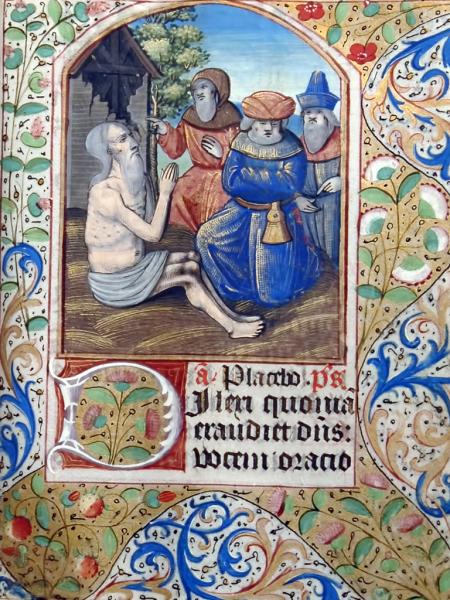 a. Placebo. ps.
Dilexi quoniā
exaudiet dn̄s:
vocem oratio